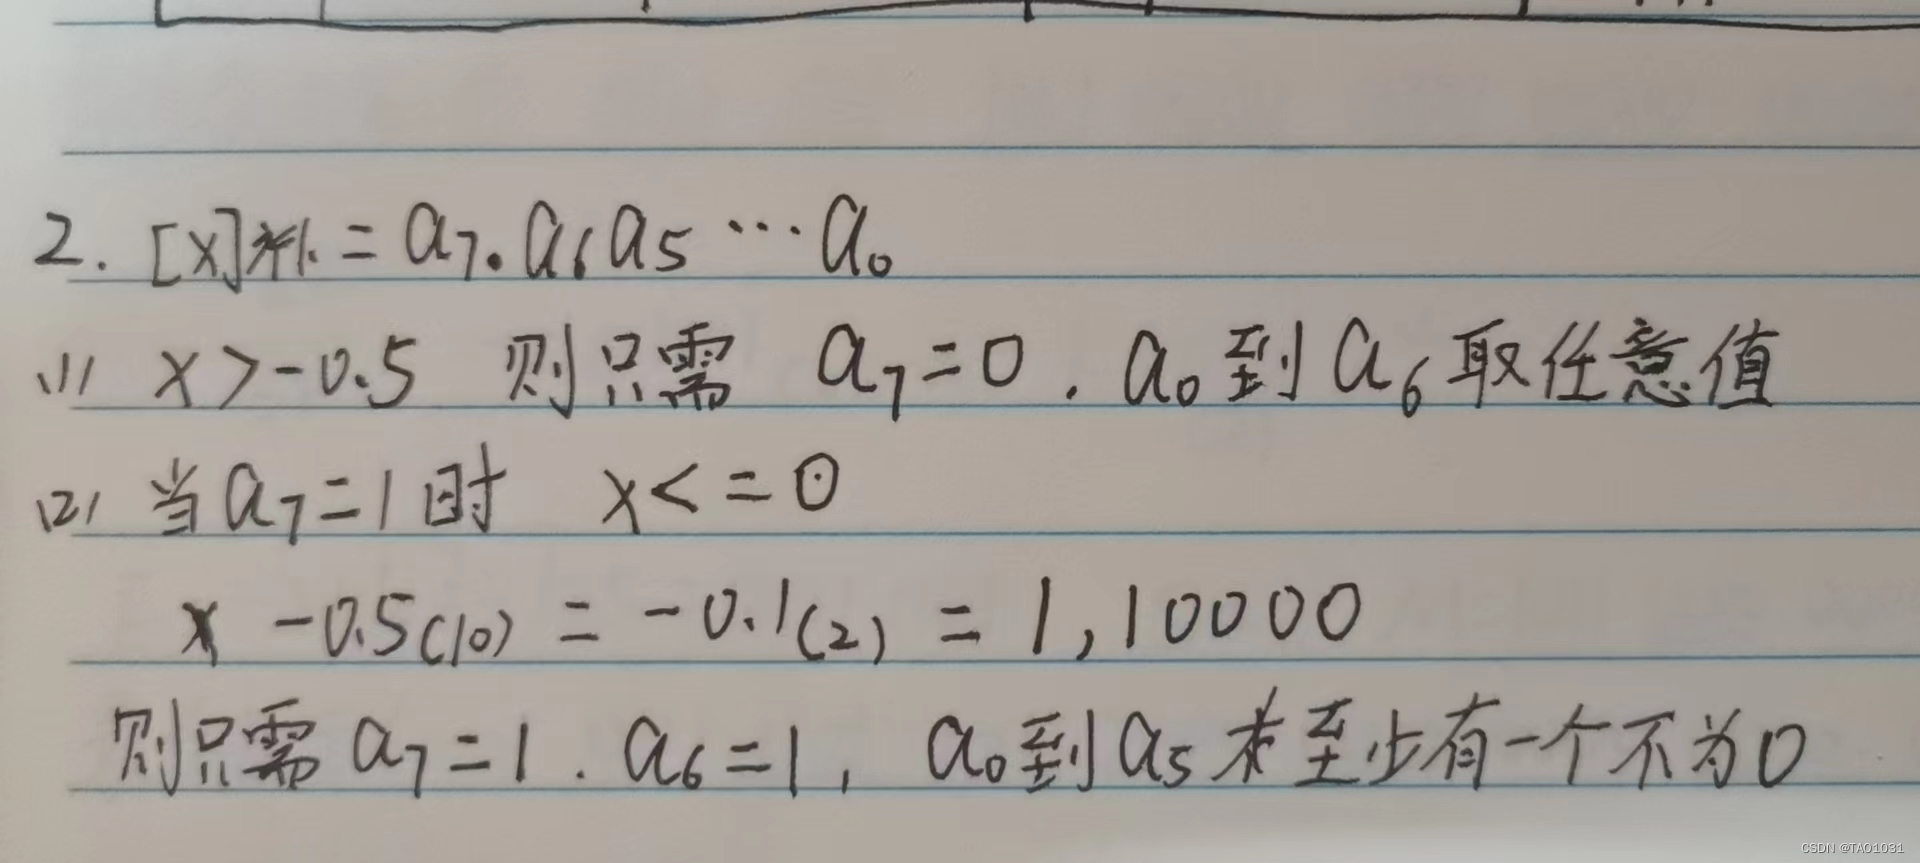 2. [X]补 = a7. a6 a5 … a0
(1) x > -0.5 则只需 a7 = 0 . a0 到 a6 取任意值
(2) 当 a7 = 1 时 x < = 0
x -0.5(10) = -0.1(2) = 1,10000
则只需 a7 = 1 . a6 = 1, a0 到 a5 至少有一个不为0
CSDN @TAO1031